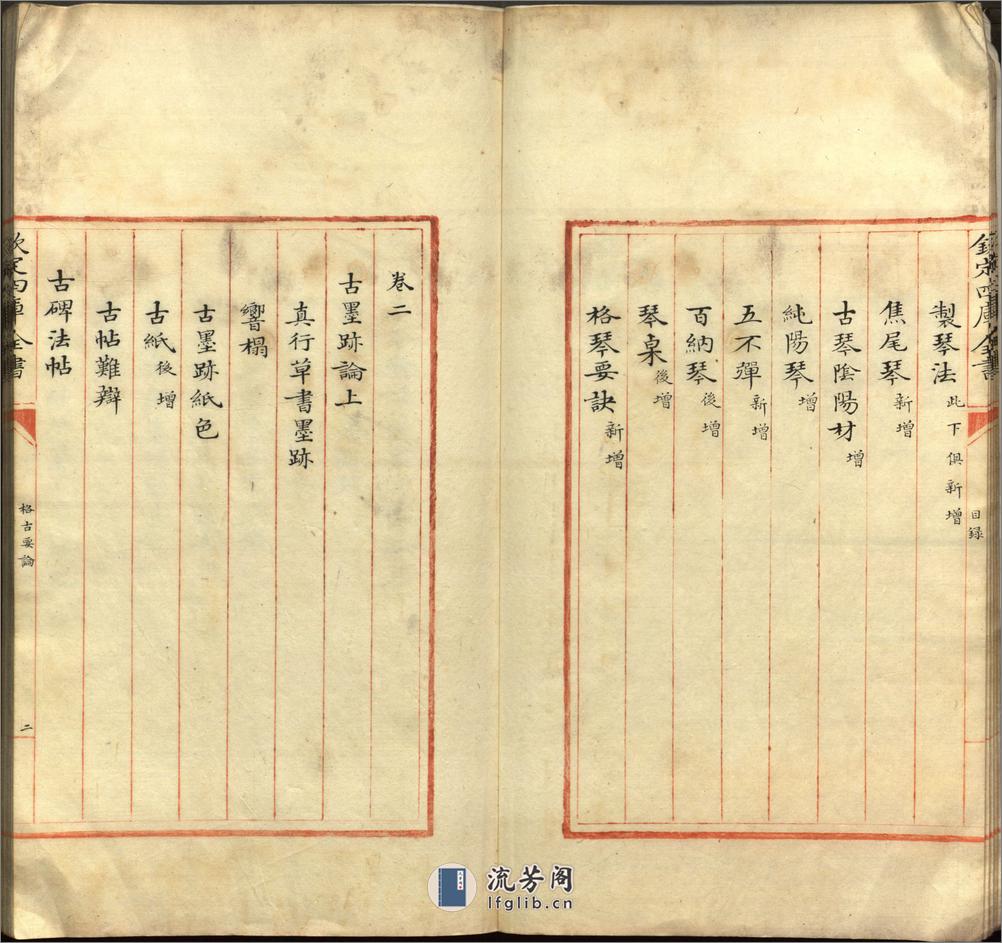 欽定四庫全書
目録
製琴法此下俱新增
焦尾琴新增
古琴陰陽材增
純陽琴增
五不彈新增
百納琴後增
琴桌後增
格琴要訣新增
卷二
古墨跡論上
真行草書墨跡
響榻
古墨跡紙色
古紙後增
古帖難辯
古碑法帖
欽定四庫全書
格古要論
二
流芳阁
lfglib.cn